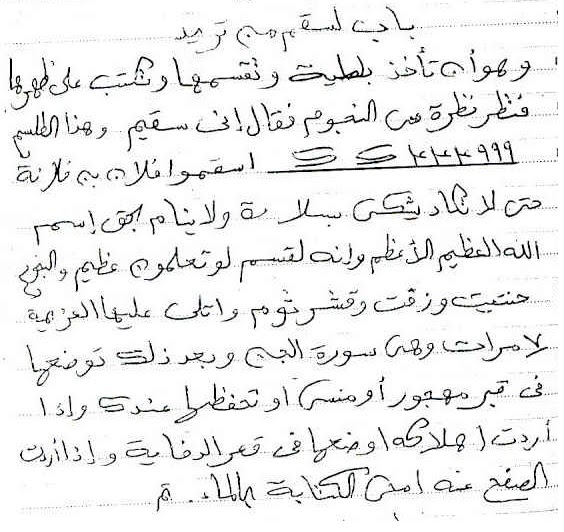 باب لسقم من تريد
وهو أن تأخذ بلطية وتقسمها وتكتب على ظهرها
فنظر نظرة في النجوم فقال إنى سقيم وهذا الطلسم
٩٩٩ اسقموا فلان بن فلانة
حتى لا يكاد يشكى ولا ينام بحق إسم
الله العظيم الأعظم وإنه لقسم لو تعلمون عظيم والبخور
حنتيت وزفت وقشر ثوم واتلى عليها العزيمة
٧ مرات وهى سورة الجن وبعد ذلك توضعها
فى قبر مهجور أو منسى او تحفظها عندك وإذا
أردت اهلاكه اوضعها فى قعر الدفاية وإذا أردت
الصفح عنه امحى الكتابة بالماء. تم